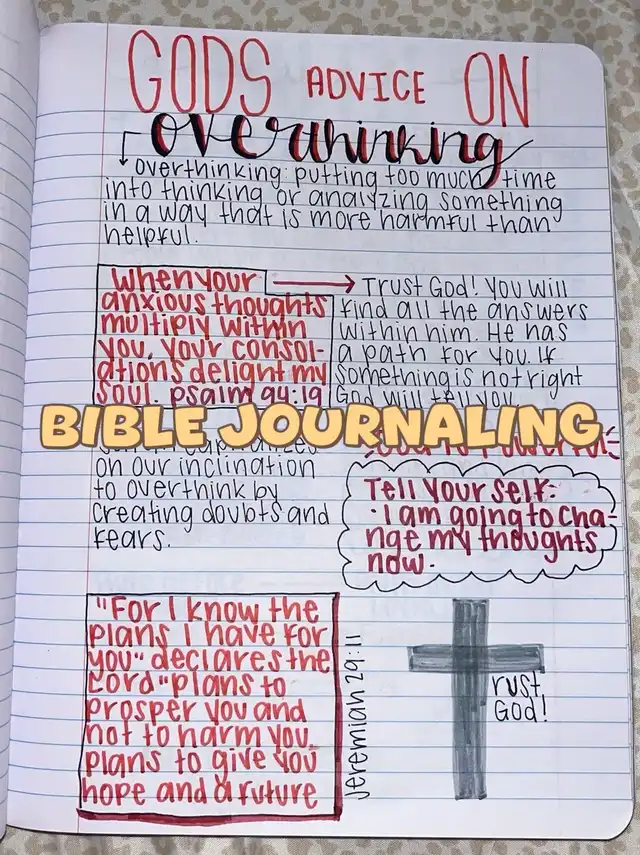 GODS ADVICE ON
overthinking
overthinking: putting too much time
into thinking or analyzing something
in a way that is more harmful than
helpful.
When your
anxious thoughts
multiply within
you, your consol-
ations delight my
soul. psalm 94:19
Trust God! You will
find all the answers
within him. He has
a path for you. If
something is not right
God will tell you
BIBLE JOURNALING
on our inclination
to overthink by
creating doubts and
fears.
Tell Your self:
·I am going to cha-
nge my thoughts
now.
"For I know the
plans I have for
you" declares the
Lord "plans to
prosper you and
not to harm you,
plans to give you
hope and a future
Jeremiah 29:11
rust
God!